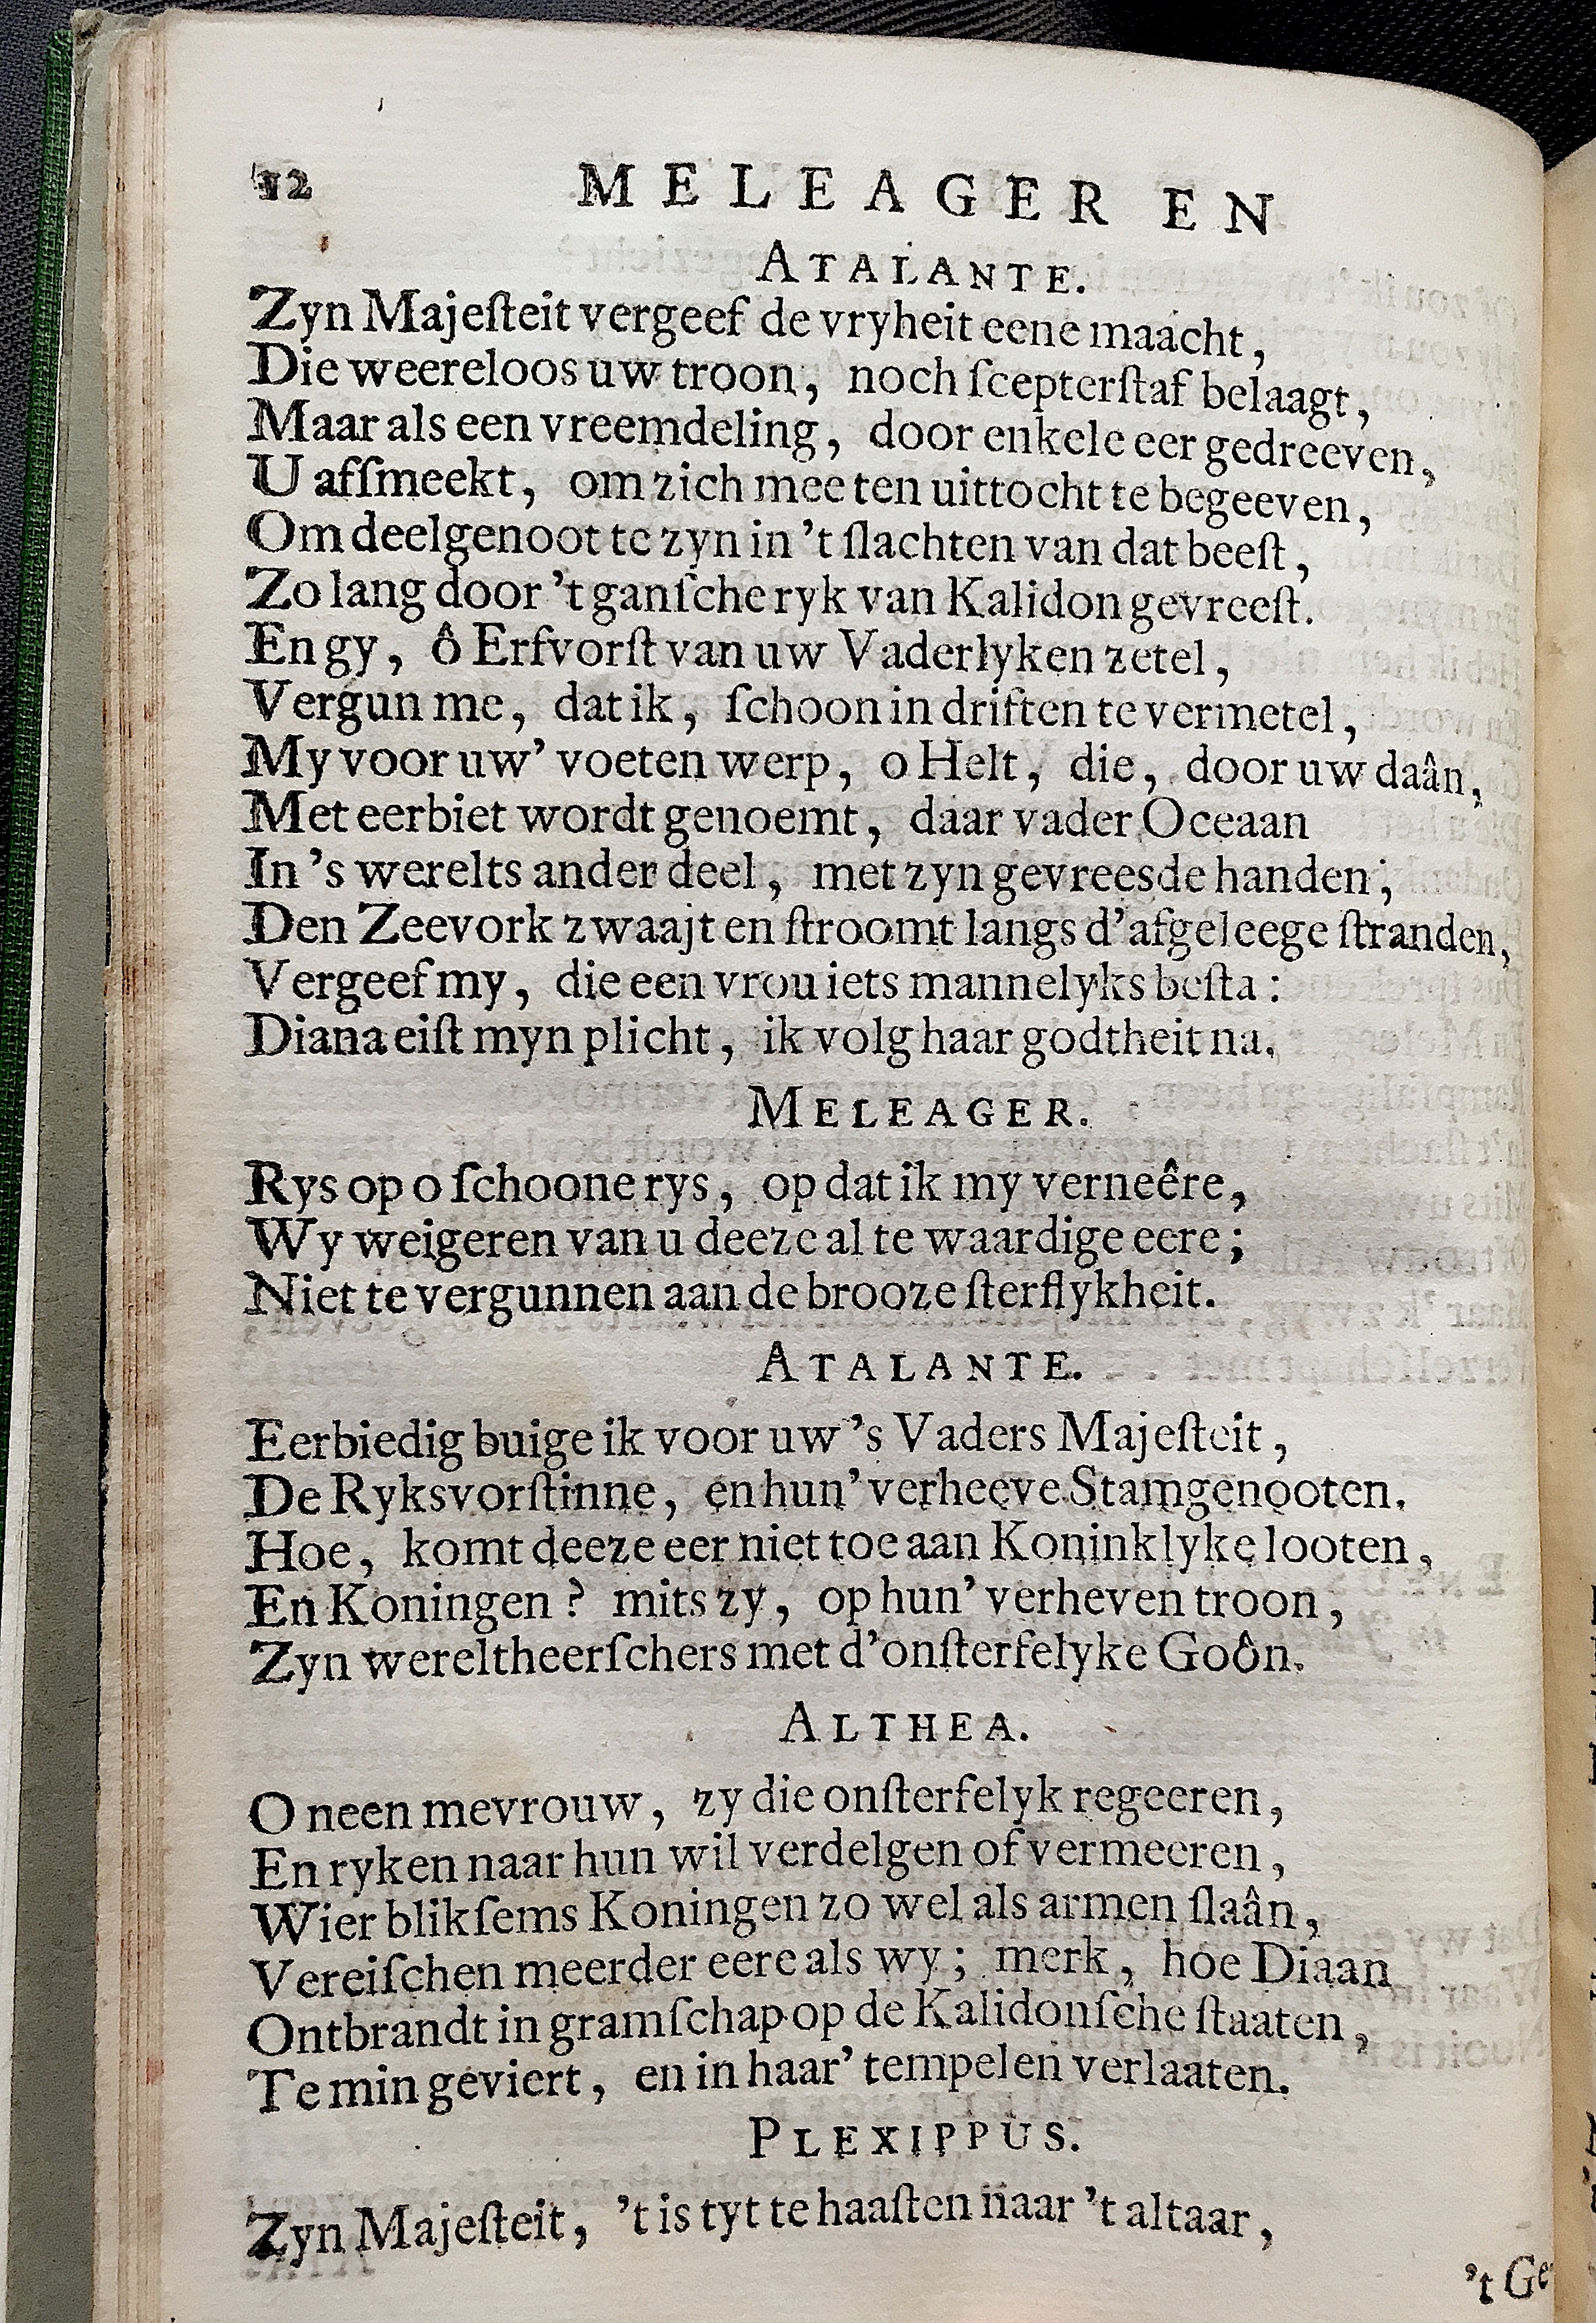 12 MELEAGER EN
ATALANTE.
Zyn Majeſteit vergeef de vryheit eene maacht,
Die weereloos uw troon, noch ſcepterſtaf belaagt,
Maar als een vreemdeling, door enkele eer gedreeven,
U afſmeekt, om zich mee ten uittocht te begeeven,
Om deelgenoot te zyn in 't ſlachten van dat beeſt,
Zo lang door 't ganſche ryk van Kalidon gevreeſt.
En gy, ô Erfvorſt van uw Vaderlyken zetel,
Vergun me, dat ik, ſchoon in driften te vermetel,
My voor uw' voeten werp, o Helt, die, door uw daân,
Met eerbiet wordt genoemt, daar vader Oceaan
In 's werelts ander deel, met zyn gevreesde handen,
Den Zeevork zwaajt en ſtroomt langs d'afgeleege ſtranden,
Vergeef my, die een vrou iets mannelyks beſta:
Diana eiſt myn plicht, ik volg haar godtheit na.
MELEAGER.
Rys op o ſchoone rys, op dat ik my verneêre,
Wy weigeren van u deeze al te waardige eere;
Niet te vergunnen aan de brooze ſterflykheit.
ATALANTE.
Eerbiedig buige ik voor uw 's Vaders Majeſteit,
De Ryksvorſtinne, en hun' verheeve Stamgenooten.
Hoe, komt deeze eer niet toe aan Koninklyke looten,
En Koningen? mits zy, op hun' verheven troon,
Zyn wereltheerſchers met d'onſterfelyke Goôn.
ALTHEA.
O neen mevrouw, zy die onſterfelyk regeeren,
En ryken naar hun wil verdelgen of vermeeren,
Wier blikſems Koningen zo wel als armen ſlaân,
Vereiſchen meerder eere als wy; merk, hoe Diaan
Ontbrandt in gramſchap op de Kalidonſche ſtaaten,
Te min geviert, en in haar' tempelen verlaaten.
PLEXIPPUS.
Zyn Majeſteit, 't is tyt te haaſten naar 't altaar,
't Ge